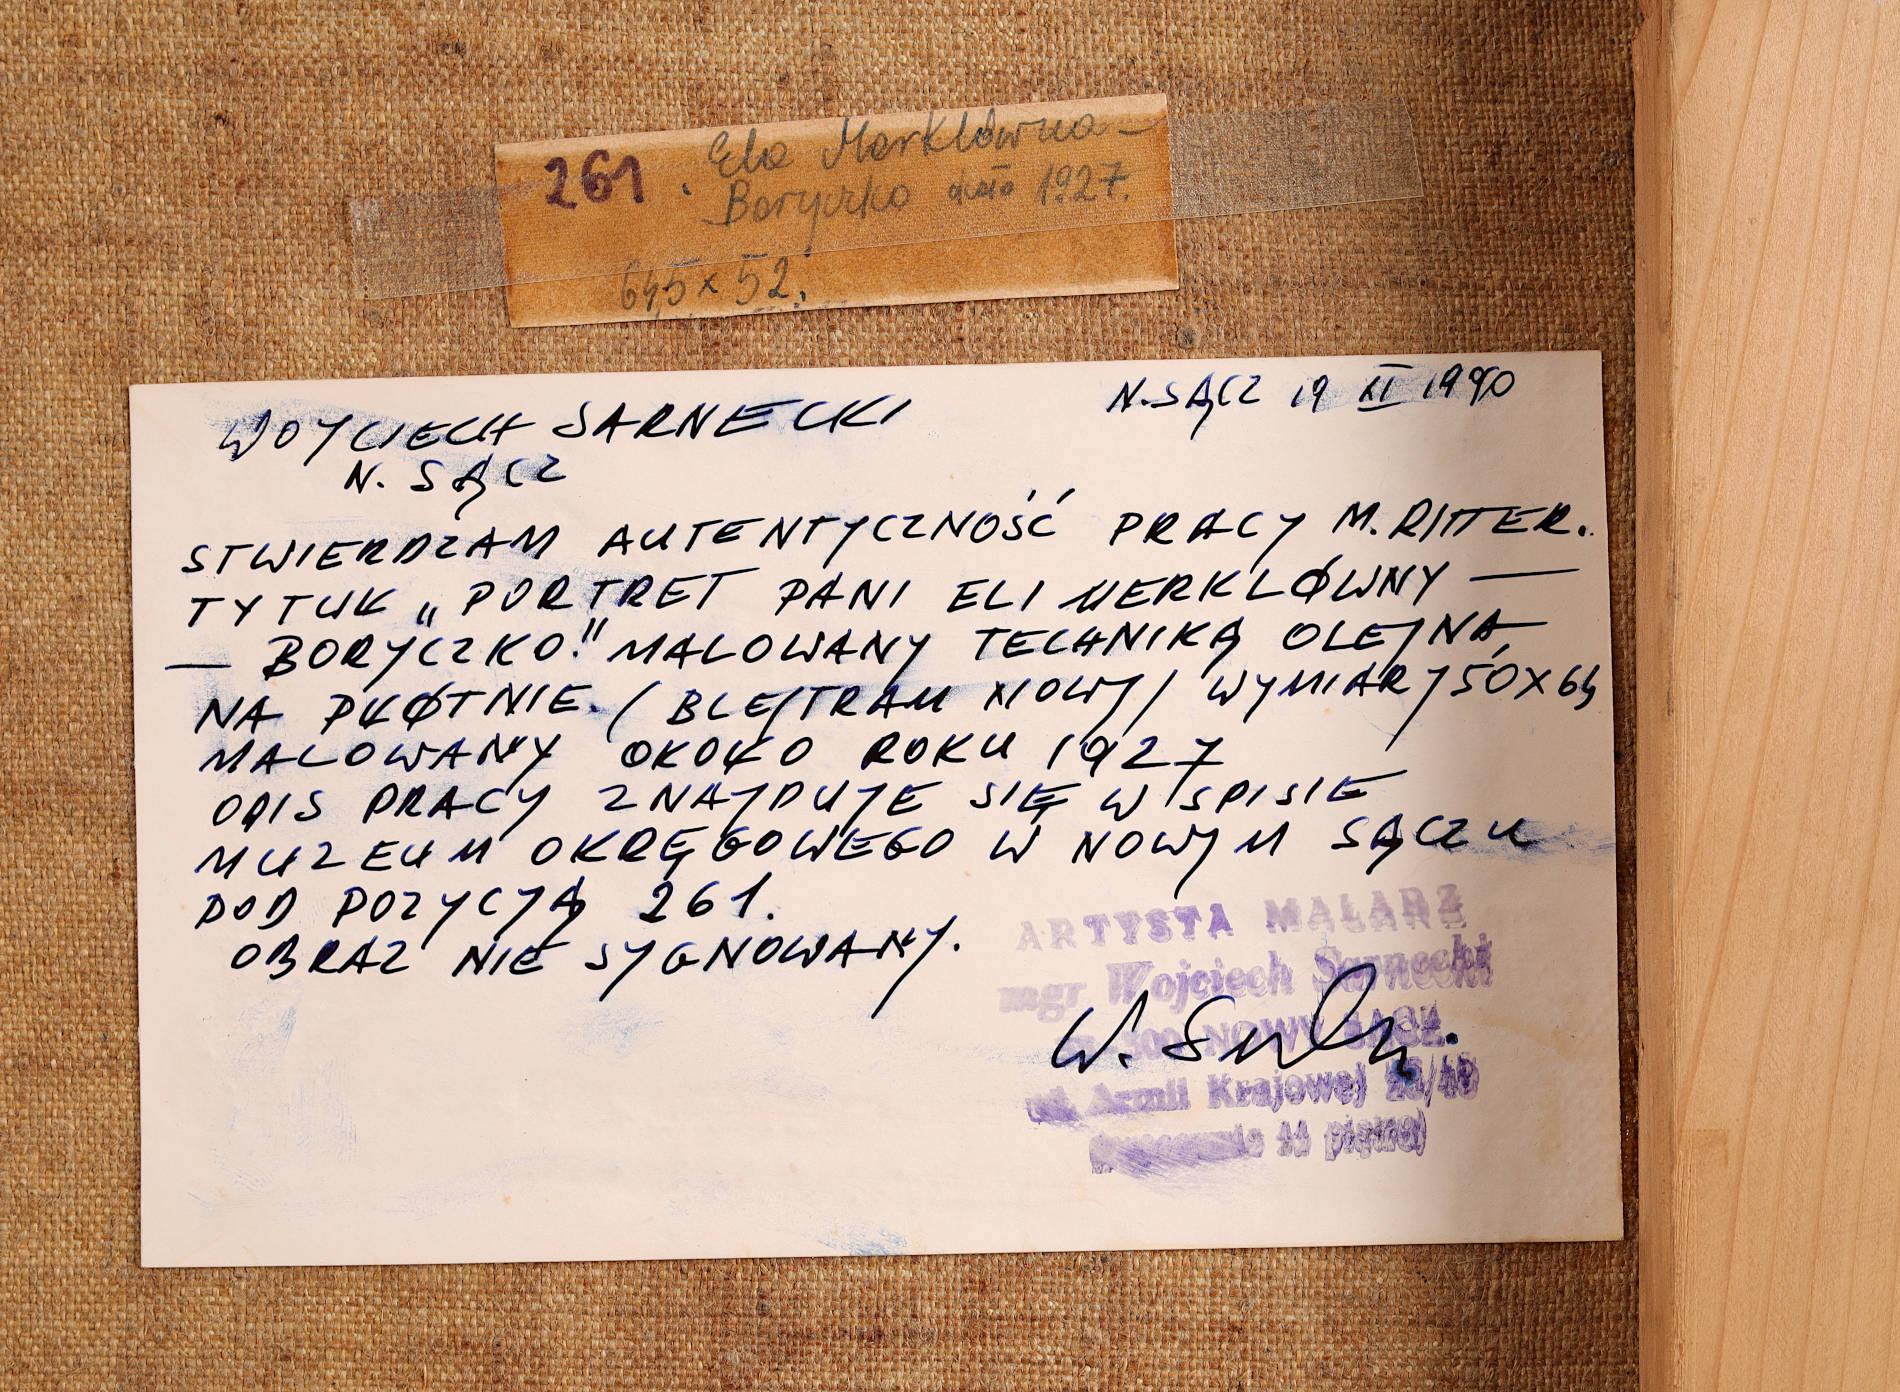 261. Ela Merklówna-
Boryczko około 1927.
64,5 x 52.
N.SĄCZ 19 XI 1990
WOJCIECH SARNECKI
N. SĄCZ
STWIERDZAM AUTENTYCZNOŚĆ PRACY M. RITTER.
TYTUŁ „PORTRET PANI ELI MERKLÓWNY —
— BORYCZKO." MALOWANY TECHNIKĄ OLEJNĄ
NA PŁÓTNIE. / BLEJTRAM NOWY / WYMIARY 50X64
MALOWANY OKOŁO ROKU 1927
OPIS PRACY ZNAJDUJE SIĘ W SPISIE
MUZEUM OKRĘGOWEGO W NOWYM SĄCZU
POD POZYCJĄ 261.
OBRAZ NIE SYGNOWANY.
ARTYSTA MALARZ
mgr Wojciech Sarnecki
NOWY SĄCZ
W.
ul. Armii Krajowej
11 piętro)